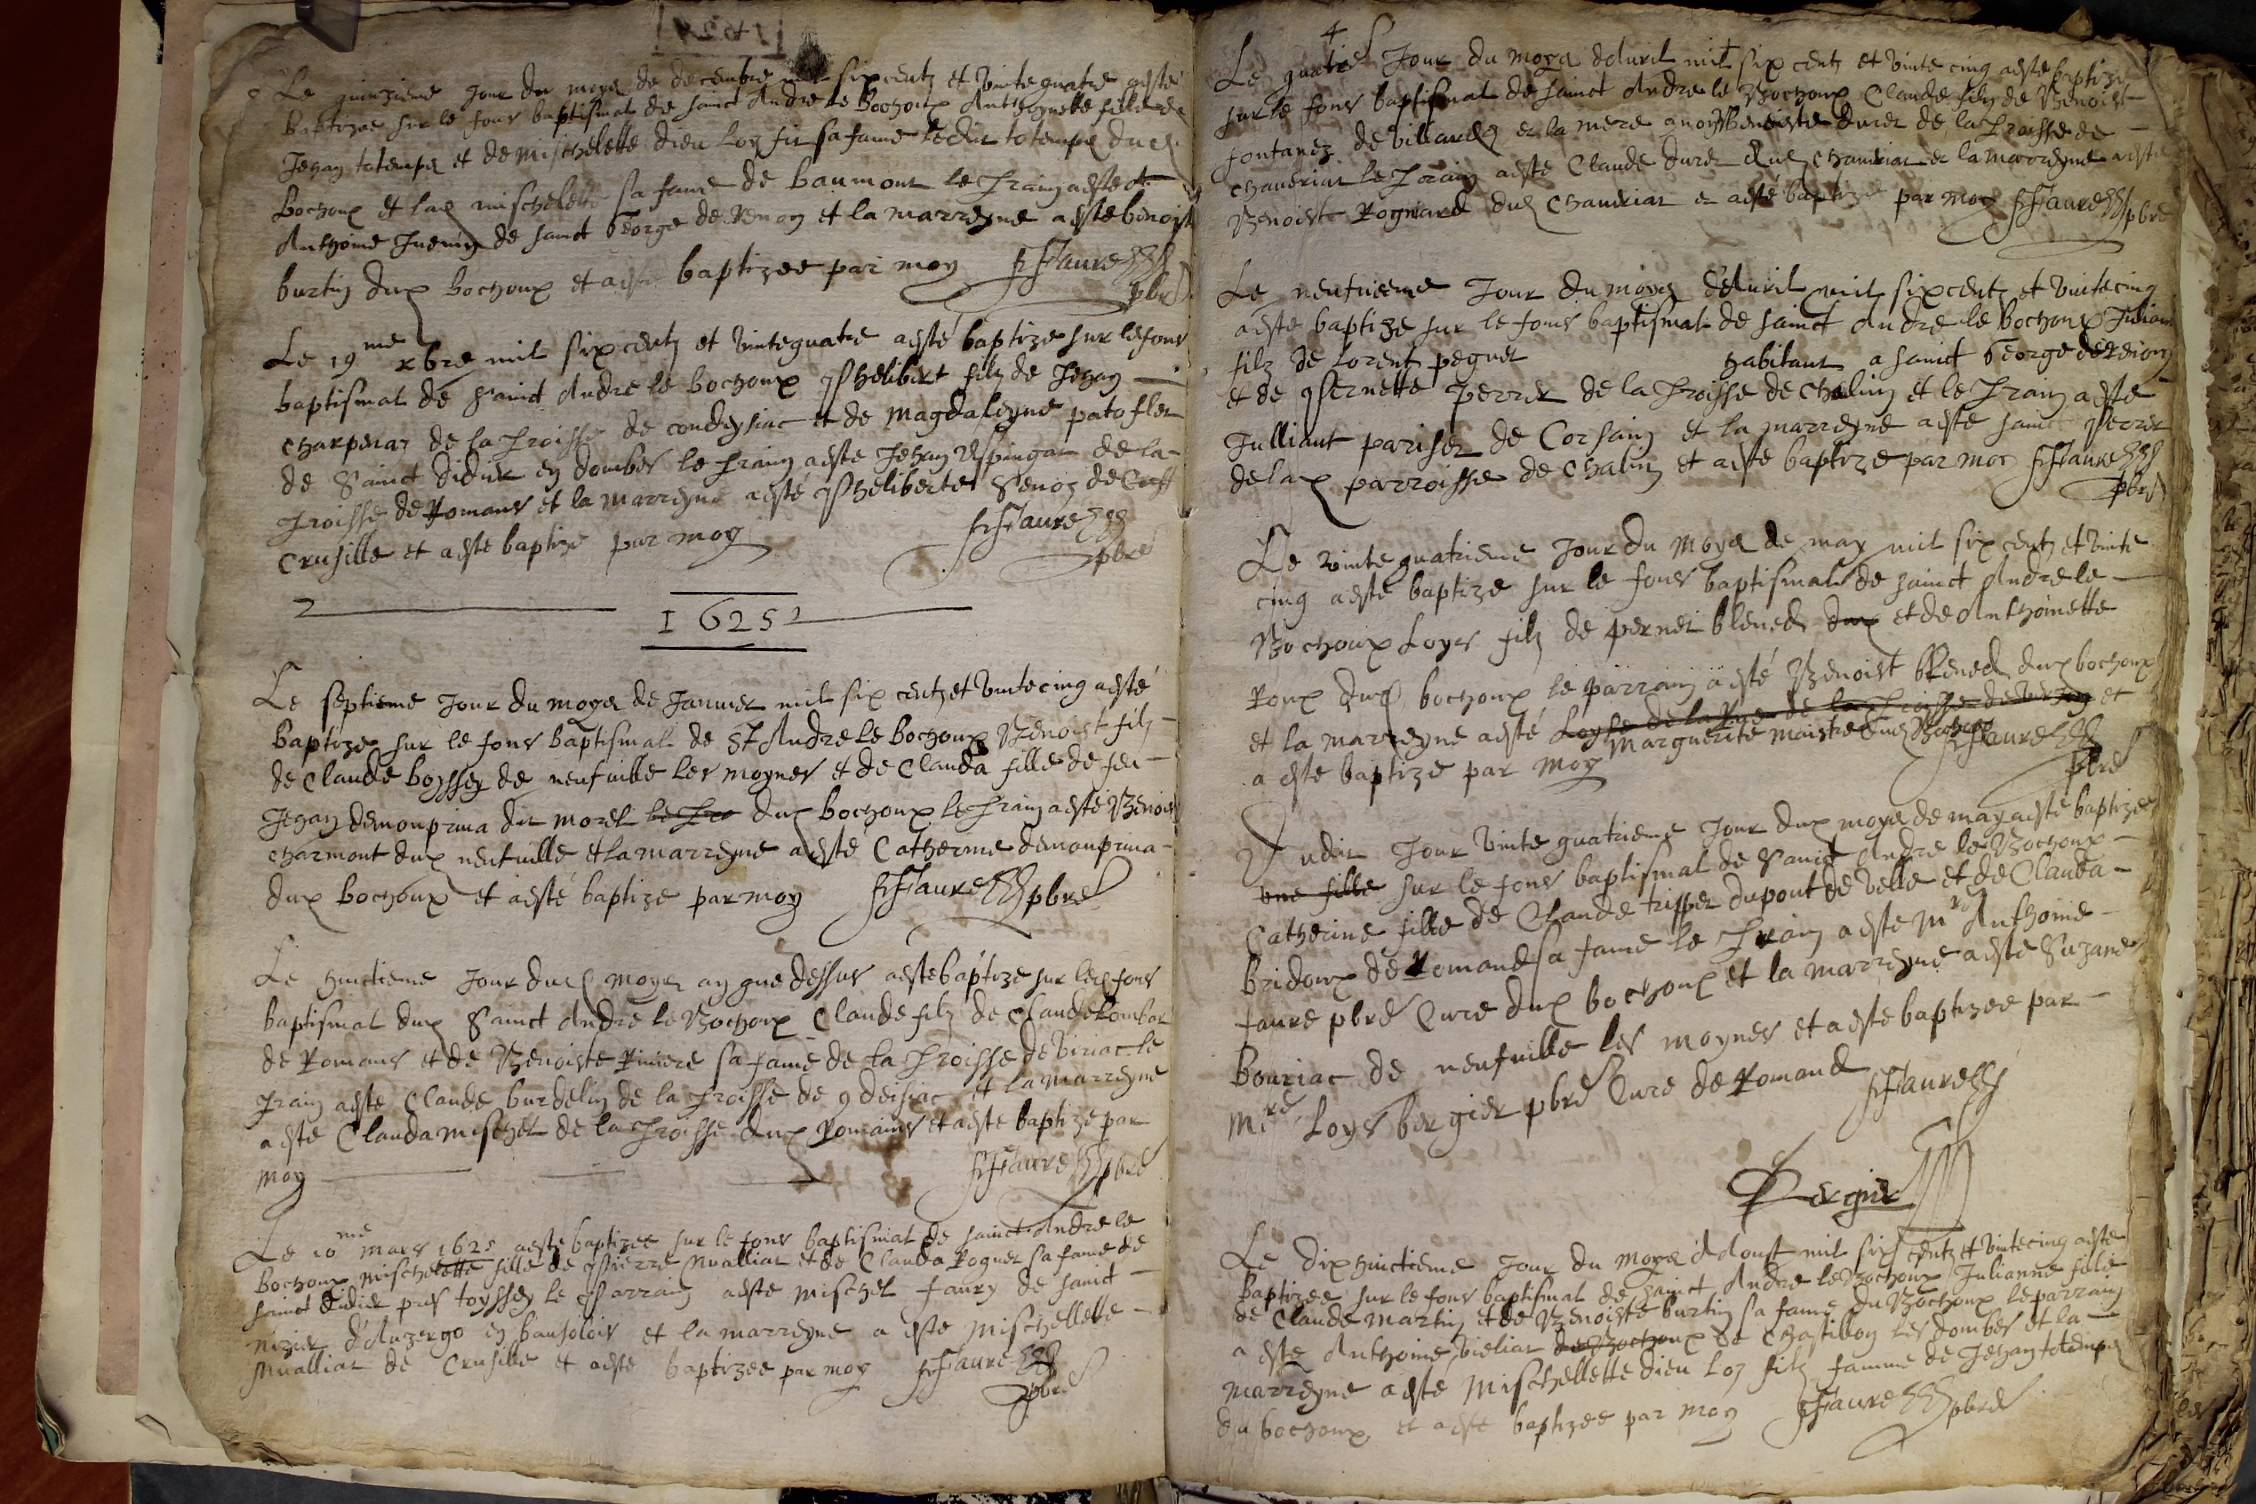 Le quinzieme Jour du moys de decembre mil six centz et vinte quatre a esté
baptizee sur le fons baptismal de sainct Andre le Bochoux Anthoynete fille de
Jehan totemps et de mischelette dieu loy fit sa fame ledit totemps dud.
bochoux et lad. mischelette sa fame de baumont le Prain a este
Anthoine Juenin de sainct George de Renon et la marreyne a este benoiste
burtin dud. bochoux et a este baptizee par moy FFaure
pbre
Le 19me xbre mil six centz et vinte quatre a esté baptize sur le fons
baptismal de sainct Andre le bochoux Phelibert filz de Jehan
charpenay de la Proisse de condeysiac et de magdaleyne patoflet
de Sainct didier en dombes le Prain a este Jehan Espingat de la
Proisse de Romans et la marreyne a esté Pheliberte Genoz de
crusille et a este baptize par moy FFaure
pbre
1625
Le septieme Jour du moys de Janvier mil six centz et vinte cinq a esté
baptize sur le fons baptismal de St Andre le bochoux Benoist filz
de Claude boyssey de neufville les moynes et de Clauda fille de feu
Jehan demonprina dit morel le Pra dud. bochoux le Prain a esté Benoist
charmont dud. neufville et la marreyne a esté Catherine demonprina
dud. bochoux et a esté baptize par moy FFaure pbre
Le huictieme Jour dud. moys an que dessus a este baptize sur led. fons
baptismal dud. Sainct Andre le Bochoux Claude filz de Claude Lombar
de Romans et de Benoiste Riviere sa fame de la Proisse de Viriac le
Prain a este Claude burdelin de la Proisse de 9deisiac et la marreyne
a este Clauda mischel de la Proisse dud. Romains et a este baptize par
moy FFaure pbre
Le 10me Mars 1625 a este baptizee sur le fons baptismal de sainct Andre le
bochoux mischelette fille de Pierre Nualliat et de Clauda Poguet sa fame de
sainct didier pres toyssey le Parrain a este mischel faury de sainct
nizier d'Auzergo en baujolois et la marreyne a este mischellette
Nualliat de Crusille et a este baptizee par moy FFaure
pbre
4
Le quatre Jour du moys d'Avril mil six centz et vinte cinq a este baptize
sur le fons baptismal de sainct Andre le Bochoux Claude filz de Benoist
fontanez de villards et la mere Benoiste duret de la Proisse de
chaveriat le Prain a esté Claude duret dud. chaveriat et la marreyne a este
Benoiste Rognard dud. chaveriat et a esté baptize par moy FFaure pbre
Le neufvieme Jour du moys d'Avril mil six centz et vinte cinq
a este baptize sur le fons baptismal de sainct Andre le bochoux Julian
filz de Lorent peguet habitant a sainct George de Renon
et de Pernette Perret de la Proisse de Chalin et le Prain a este
Julliant pariset de Corsain et la marreyne a este Perret
de lad. parroisse de Chalin et a este baptize par moy FFaure
pbre
Le vinte quatrieme Jour du moys de may mil six centz et vinte
cinq a esté baptize sur le fons baptismal de sainct Andre le
Bochoux Loys filz de pernet blened dud. et de Anthoinette
Roux dud. bochoux le parrain a esté Benoist blened dud. bochoux
et la marreyne a esté Loyse de la de la Proisse de et
marguerite maistre dud. Bochoux
a este baptize par moy FFaure
pbre
Dudit Jour vinte quatrieme Jour dud. moys de may a esté baptizee
une fille sur le fons baptismal de Sainct Andre le Bochoux
Catherine fille de Claude tripper du pont de velle et de Clauda
bridoux de Romand sa fame le Prain a este mre Anthoine
faure pbre Cure dud. bochoux et la marreyne a este Suzane
Bouriac de neufville les moynes et a este baptizee par
mre Loys bergier pbre Cure de Romand FFaure
Bergier
Le dix huictieme Jour du moys d'Aoust mil six centz et vinte cinq a este
baptizee sur le fons baptismal de sainct Andre le Bochoux Julianne fille
de Claude martin et de Benoiste burtin sa fame du Bochoux le parrain
a este Anthoine vieliat du Bochoux de Chastillon les dombes et la
marreyne a este mischellette dieu loy fitz famme de Jehan totemps
du bochoux et a este baptizee par moy FFaure pbre